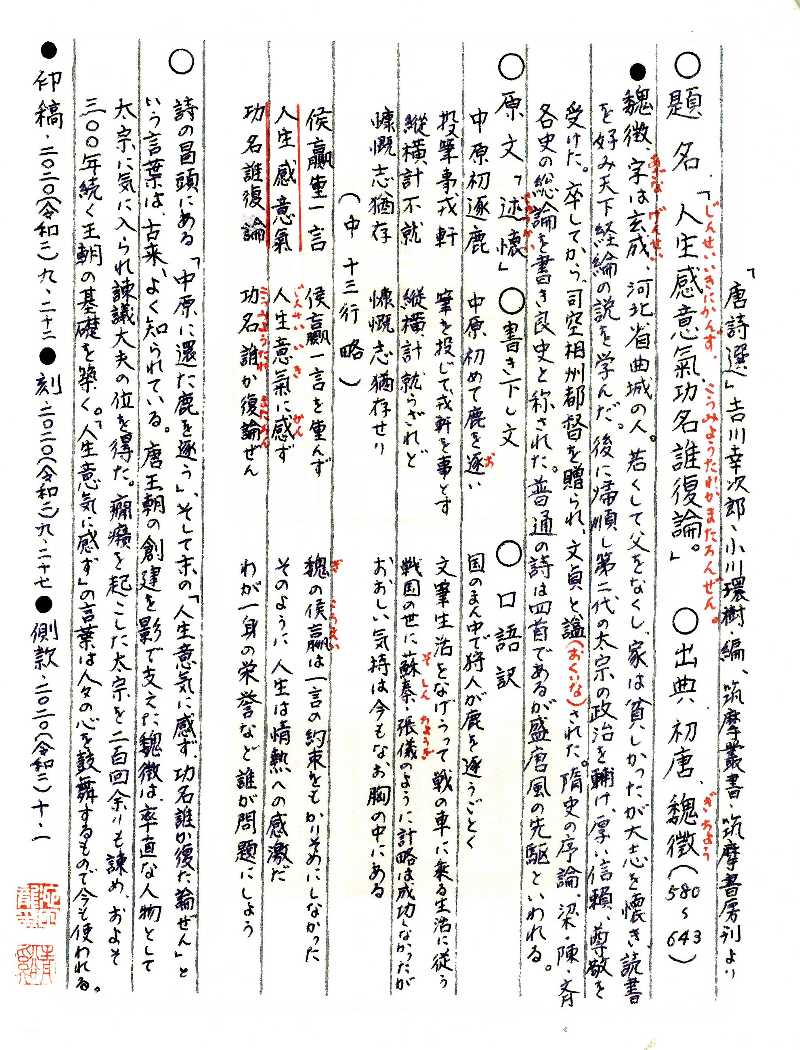 「唐詩選」吉川幸次郎、小川環樹・編、筑摩叢書・筑摩書房刊より
○題名「人生感意氣功名誰復論。」○出典 初唐、魏徴（580～643）
じんせいいきにかんず こうみようたれかまたろんぜん。
ぎちよう
●魏徴、字は玄成、河北省曲城の人。若くして父をなくし、家は貧しかったが大志を懐き、読書
あざな げんせい
を好み天下経綸の説を学んだ。後に帰順し第二代の太宗の政治を輔け、厚い信頼、尊敬を
受けた。卒してから、司空相州都督を贈られ、文貞と諡（おくりな）された。隋史の序論、梁・陳・斉
各史の総論を書き良史と称された。普通の詩は四首であるが盛唐風の先駆といわれる。
○原文「述懐」○書き下し文 ○口語訳
中原初逐鹿 中原初めて鹿を逐い 国のまん中で狩人が鹿を逐うごとく
お
投筆事戎軒 筆を投じて戎軒を事とす 文筆生活をなげうって戦の車に乗る生活に従う
縦横計不就 縦横計就らざれど 戦国の世に蘇秦・張儀のように計略は成功しなかったが
そしん ちようぎ
慷慨志猶存 慷慨志猶存せり おおしい気持は今もなお胸の中にある
（中十三行略）
侯嬴重一言 侯嬴一言を重んず 魏の侯嬴は一言の約束をもかりそめにしなかった
ぎ こうえい
人生感意氣 人生意氣に感ず そのように人生は情熱への感激だ
じんせいいき かん
功名誰復論 功名誰か復論ぜん わが一身の栄誉など誰が問題にしよう
こうみようたれ またろん
○詩の冒頭にある「中原に還た鹿を逐う」、そして末の「人生意気に感ず 功名誰か復た論ぜん」と
いう言葉は、古来、よく知られている。唐王朝の創建を影で支えた魏徴は、率直な人物として
太宗に気に入られ諫議大夫の位を得た。癇癪を起こした太宗を二百回余りも諫め、およそ
三〇〇年続く王朝の基礎を築く。「人生意気に感ず」の言葉は人々の心を鼓舞するもので今も使われる。
●印稿・二〇二〇（令和二）九、二十二●刻・二〇二〇（令和二）九、二十七●側款・二〇二〇（令和二）十、一